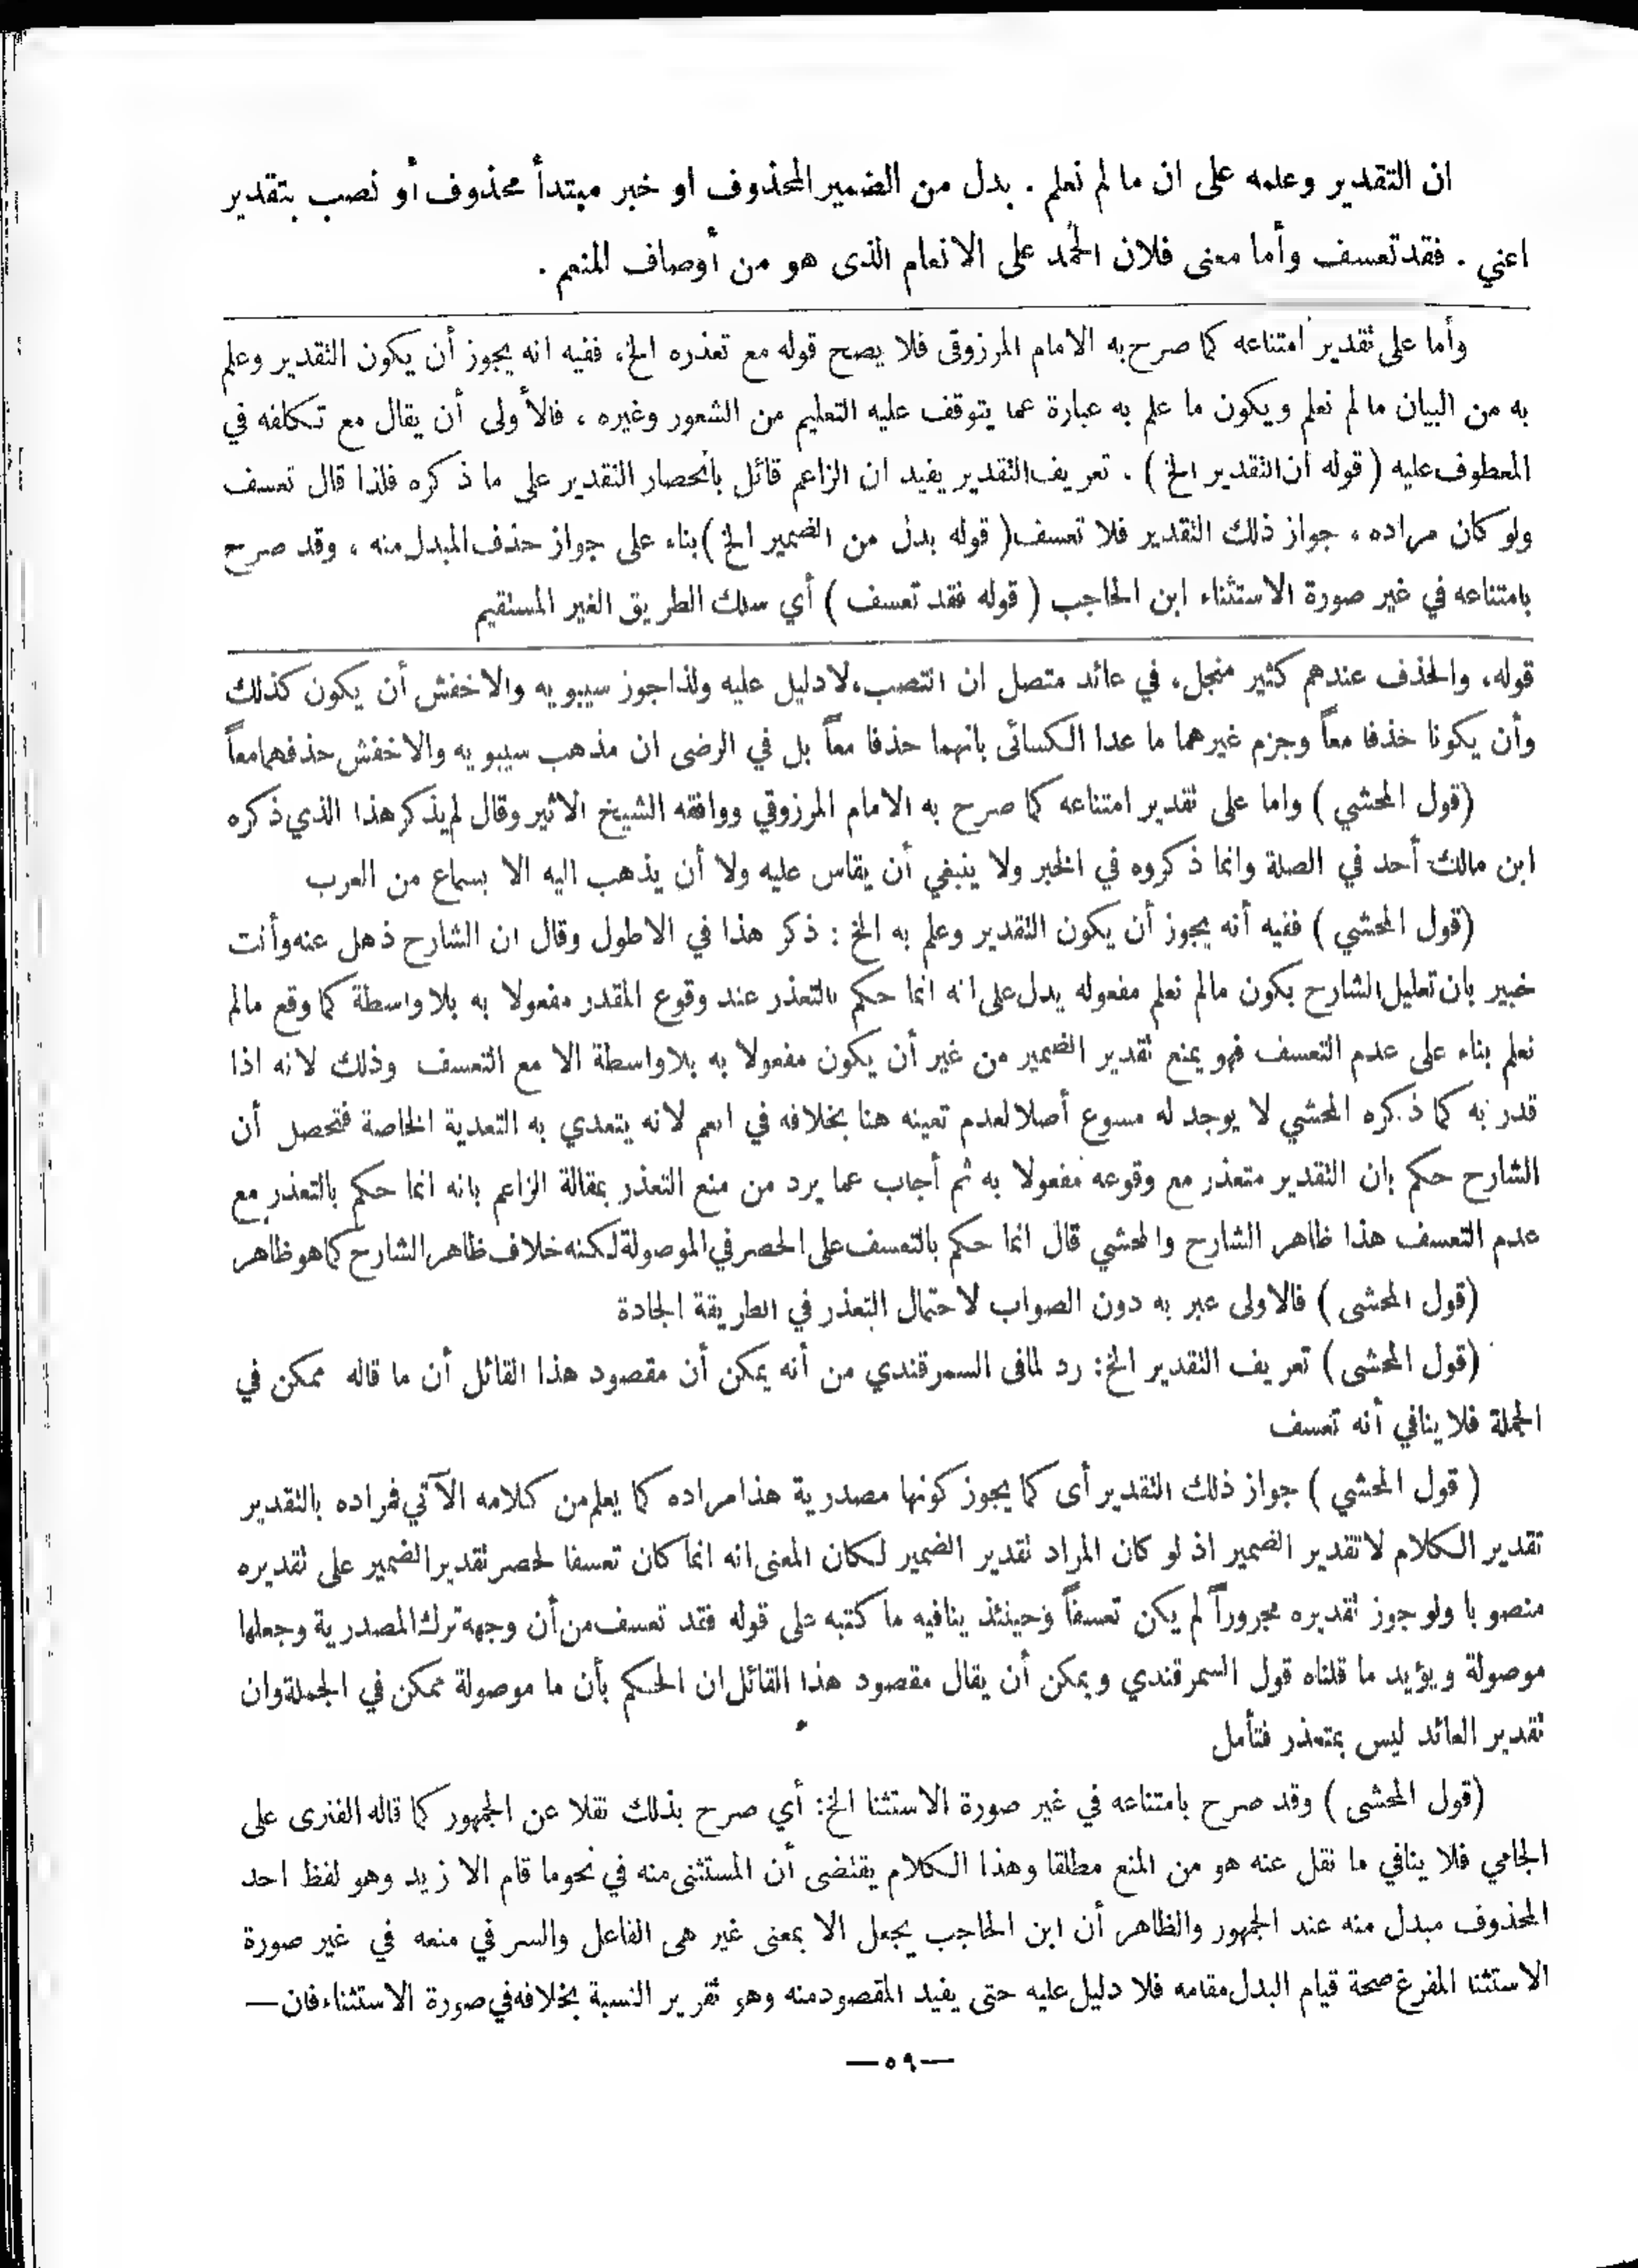 ان التقدير وعلمه على ان ما لم نعلم . بدل من الضمير المحذوف او خبر مبتدأ محذوف أو نصب بتقدير
اعني . فقد تعسف وأما معنى فلان الحمد على الانعام الذى هو من أوصاف المنعم .
وأما على تقدير امتناعه كما صرح به الامام المرزوقى فلا يصح قوله مع تعذره الخ، ففيه انه يجوز أن يكون التقدير وعلم
به من البيان ما لم نعلم ويكون ما علم به عبارة عما يتوقف عليه التعليم من الشعور وغيره ، فالأولى أن يقال مع تكلفه في
المعطوف عليه ( قوله أن التقدير الخ ) . تعريف التقدير يفيد ان الزاعم قائل بانحصار التقدير على ما ذكره فلذا قال تعسف
ولو كان مراده ، جواز ذلك التقدير فلا تعسف ( قوله بدل من الضمير الخ ) بناء على جواز حذف المبدل منه ، وقد صرح
بامتناعه في غير صورة الاستثناء ابن الحاجب ( قوله فقد تعسف ) أي سلك الطريق الغير المستقيم
قوله، والحذف عندهم كثير منجل، في عائد متصل ان انتصب، لا دليل عليه ولذا جوز سيبويه والاخفش أن يكون كذلك
وأن يكونا حذفا معاً وجزم غيرهما ما عدا الكسائى بانهما حذفا معاً بل في الرضى ان مذهب سيبويه والاخفش حذفهما معاً
(قول المحشي ) واما على تقدير امتناعه كما صرح به الامام المرزوقي ووافقه الشيخ الاثير وقال لم يذكر هذا الذي ذكره
ابن مالك أحد في الصلة وانما ذكروه في الخبر ولا ينبغي أن يقاس عليه ولا أن يذهب اليه الا بسماع من العرب
(قول المحشي ) ففيه أنه يجوز أن يكون التقدير وعلم به الخ : ذكر هذا في الاطول وقال ان الشارح ذهل عنه وأنت
خبير بان تعليل الشارح بكون مالم نعلم مفعوله يدل على انه انما حكم بالتعذر عند وقوع المقدر مفعولا به بلا واسطة كما وقع مالم
نعلم بناء على عدم التعسف فهو يمنع تقدير الضمير من غير أن يكون مفعولا به بلا واسطة الا مع التعسف وذلك لانه اذا
قدر به كما ذكره المحشي لا يوجد له مسوع أصلا لعدم تعينه هنا بخلافه في انعم لانه يتعدي به التعدية الخاصة فتحصل أن
الشارح حكم بان التقدير متعذر مع وقوعه مفعولا به ثم أجاب عما يرد من منع التعذر بمقالة الزاعم بانه انما حكم بالتعذر مع
عدم التعسف هذا ظاهر الشارح والمحشي قال انما حكم بالتعسف على الحصر في الموصولة لكنه خلاف ظاهر الشارح كما هو ظاهر
(قول المحشى ) فالاولى عبر به دون الصواب لاحتمال التعذر في الطريقة الجادة
(قول المحشى ) تعريف التقدير الخ: رد لمافى السمرقندي من أنه يمكن أن مقصود هذا القائل أن ما قاله ممكن في
الجملة فلا ينافي أنه تعسف
( قول المحشي ) جواز ذلك التقدير أى كما يجوز كونها مصدرية هذا مراده كما يعلم من كلامه الآتي فمراده بالتقدير
تقدير الكلام لا تقدير الضمير اذ لو كان المراد تقدير الضمير لكان المعنى انه انما كان تعسفا لحصر تقدير الضمير على تقديره
منصوبا ولو جوز تقديره مجروراً لم يكن تعسفاً وحينئذ ينافيه ما كتبه على قوله فقد تعسف من أن وجهه ترك المصدرية وجعلها
موصولة ويؤيد ما قلناه قول السمرقندي ويمكن أن يقال مقصود هذا القائل ان الحكم بأن ما موصولة ممكن في الجملة وان
تقدير العائد ليس بمتعذر فتأمل
(قول المحشى ) وقد صرح بامتناعه في غير صورة الاستثنا الخ: أي صرح بذلك نقلا عن الجمهور كما قاله الفنرى على
الجامي فلا ينافي ما نقل عنه هو من المنع مطلقا وهذا الكلام يقتضى أن المستثنى منه في نحو ما قام الا زيد وهو لفظ احد
المحذوف مبدل منه عند الجمهور والظاهر أن ابن الحاجب يجعل الا بمعنى غير هى الفاعل والسر في منعه في غير صورة
الاستثنا المفرغ صحة قيام البدل مقامه فلا دليل عليه حتى يفيد المقصود منه وهو تقرير النسبة بخلافه في صورة الاستثناء فان —
— ٥٩ —